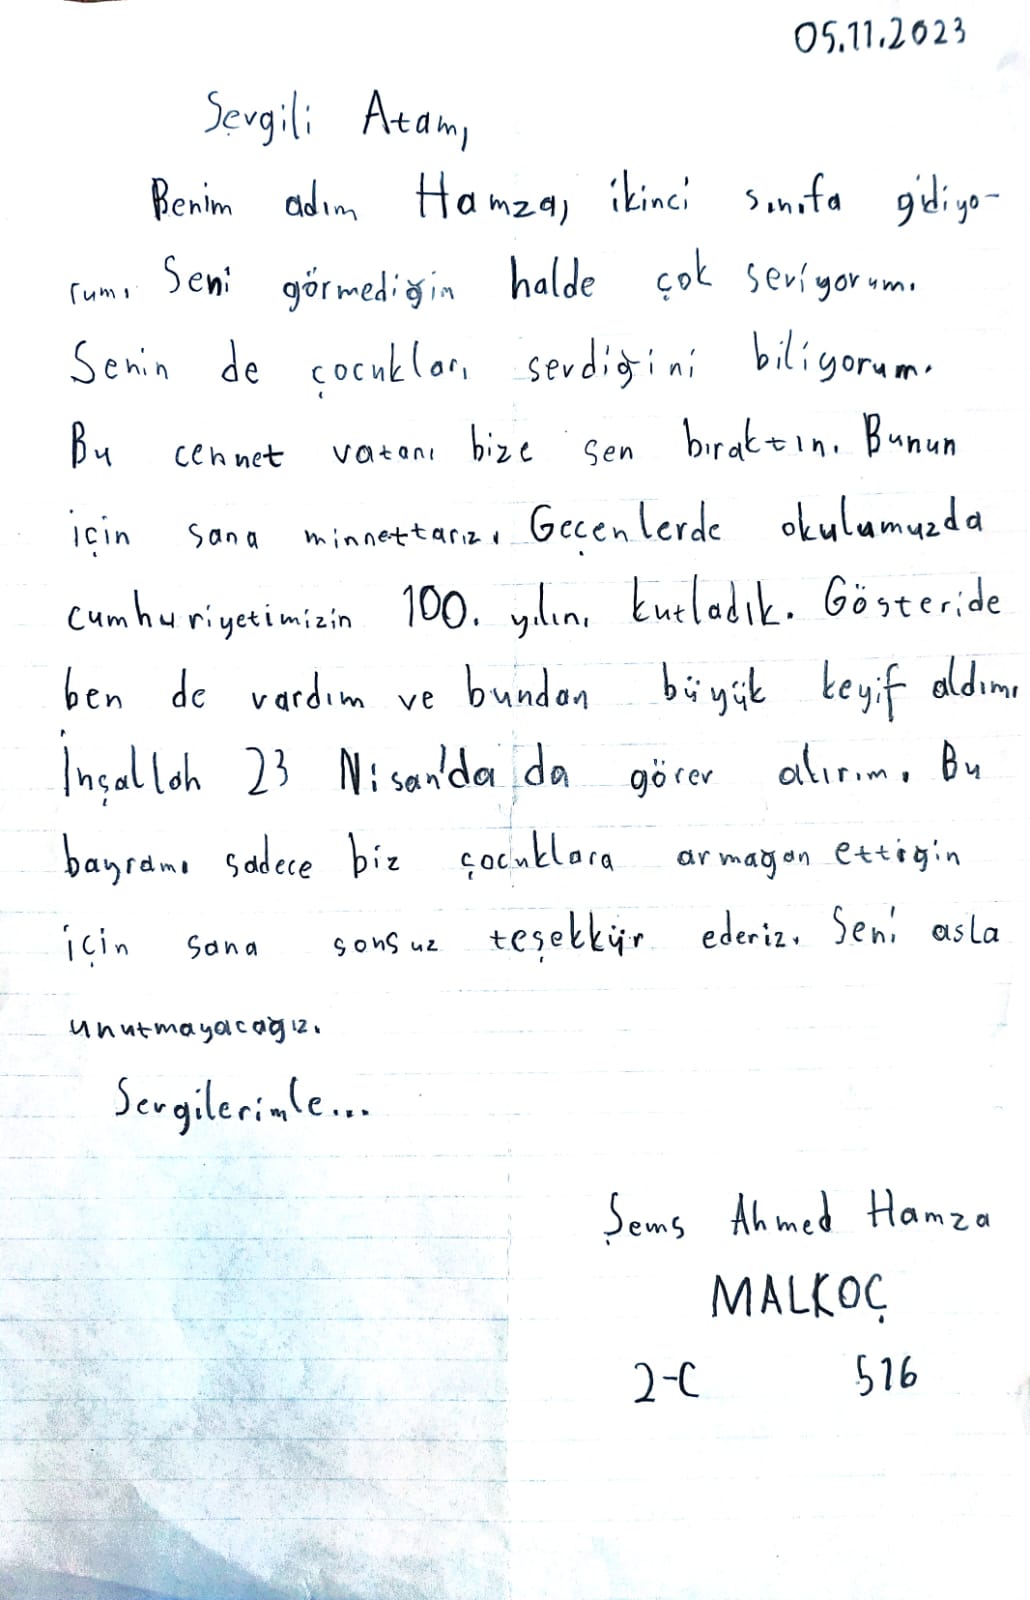 05.11.2023
Sevgili Atam,
Benim adım Hamza, ikinci sınıfa gidiyo-
rum. Seni görmediğin halde çok seviyorum.
Senin de çocukları sevdiğini biliyorum.
Bu cennet vatanı bize sen bıraktın. Bunun
için sana minnettarız. Geçenlerde okulumuzda
cumhuriyetimizin 100. yılını kutladık. Gösteride
ben de vardım ve bundan büyük keyif aldım.
İnşallah 23 Nisan'da da görev alırım. Bu
bayramı sadece biz çocuklara armağan ettiğin
için sana sonsuz teşekkür ederiz. Seni asla
unutmayacağız.
Sevgilerimle...
Şems Ahmed Hamza
MALKOÇ
2-C 516